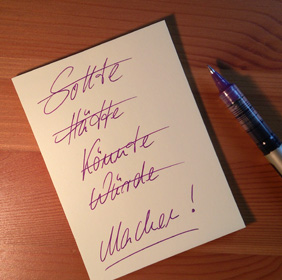 Sollte
Hätte
Könnte
Würde
Machen!